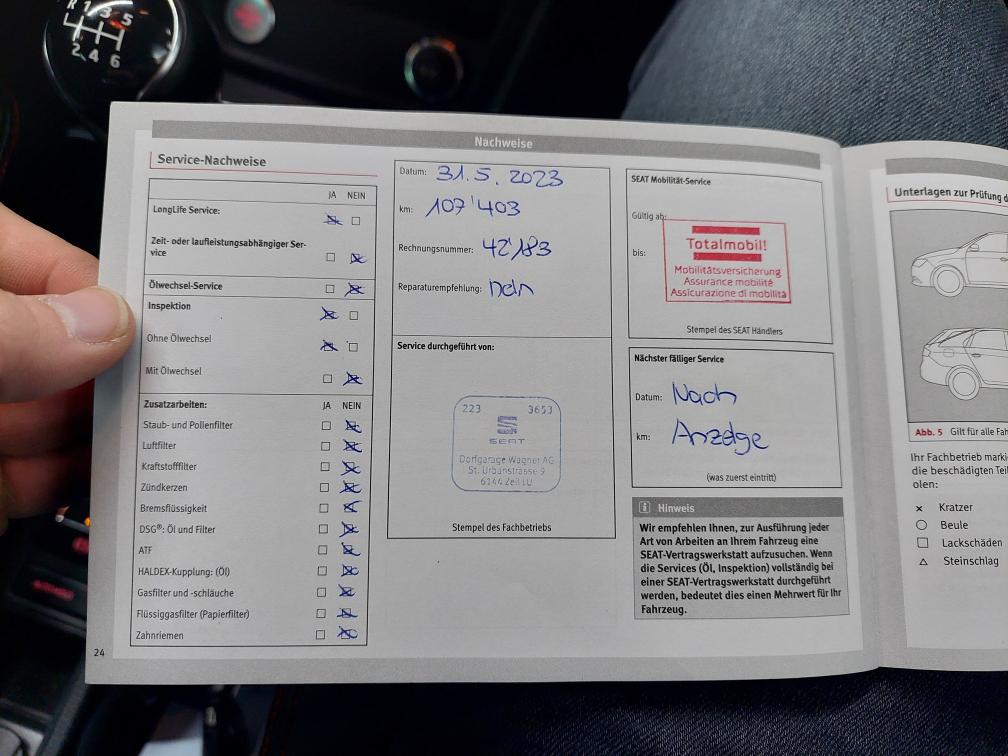 R 1 3 5
2 4 6
Nachweise
Service-Nachweise
JA NEIN
LongLife Service:
Zeit- oder laufleistungsabhängiger Ser-
vice
Ölwechsel-Service
Inspektion
Ohne Ölwechsel
Mit Ölwechsel
Zusatzarbeiten: JA NEIN
Staub- und Pollenfilter
Luftfilter
Kraftstofffilter
Zündkerzen
Bremsflüssigkeit
DSG®: Öl und Filter
ATF
HALDEX-Kupplung: (Öl)
Gasfilter und -schläuche
Flüssiggasfilter (Papierfilter)
Zahnriemen
24
Datum: 31.5.2023
km: 107'403
Rechnungsnummer: 42'183
Reparaturempfehlung: nein
Service durchgeführt von:
223 3653
SEAT
Dorfgarage Wagner AG
St. Urbanstrasse 9
6144 Zell LU
Stempel des Fachbetriebs
SEAT Mobilität-Service
Gültig ab:
bis:
Totalmobil!
Mobilitätsversicherung
Assurance mobilité
Assicurazione di mobilità
Stempel des SEAT Händlers
Nächster fälliger Service
Datum: Nach
km: Anzeige
(was zuerst eintritt)
Hinweis
Wir empfehlen Ihnen, zur Ausführung jeder
Art von Arbeiten an Ihrem Fahrzeug eine
SEAT-Vertragswerkstatt aufzusuchen. Wenn
die Services (Öl, Inspektion) vollständig bei
einer SEAT-Vertragswerkstatt durchgeführt
werden, bedeutet dies einen Mehrwert für Ihr
Fahrzeug.
Unterlagen zur Prüfung d
Abb. 5 Gilt für alle Fah
Ihr Fachbetrieb marki
die beschädigten Teil
olen:
Kratzer
Beule
Lackschäden
Steinschlag